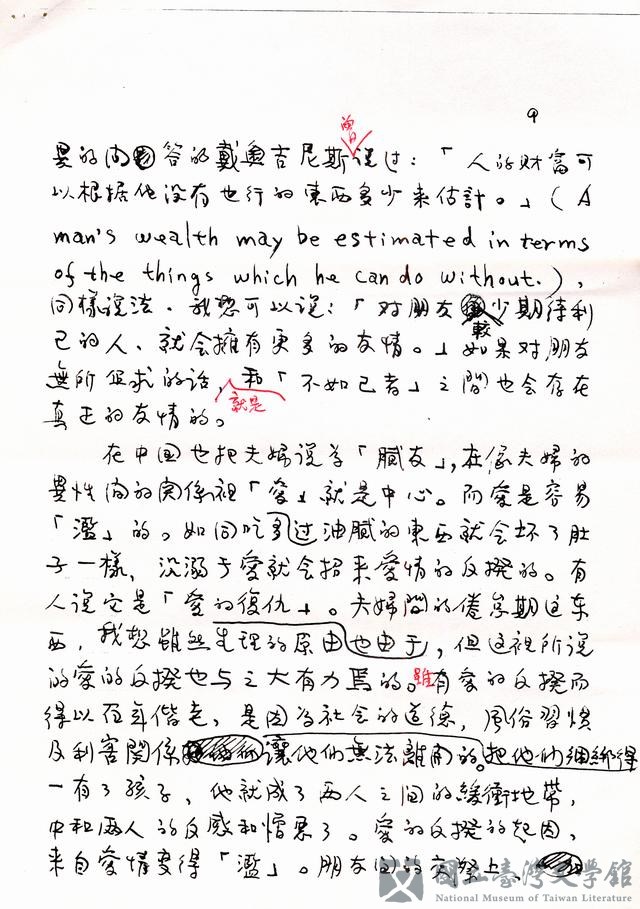 9
曾
異的问答的戴奧吉尼斯说过：「人的财富可
以根据他没有也行的東西多少来估計。」（A
man's wealth may be estimated in terms
of the things which he can do without.），
同樣说法，我想可以说：「对朋友較少期待利
己的人，就会擁有更多的友情。」如果对朋友
無所促求的话，和「不如己者」之間也会存在
就是
真正的友情的。
在中国也把夫婦说学「膩友」，在像夫婦的
異性间的関係裡「愛」就是中心。而愛是容易
「濫」的。如同吃多过油膩的東西就会坏了肚
子一樣，沉溺于愛就会招来愛情的反撥的。有
人说它是「愛的復仇」。夫婦間的倦怠期这东
西，我想雖然生理的原由也由于，但这裡所说
的愛的反撥也与之大有力焉的。雖有愛的反撥而
得以百年偕老，是因为社会的道德，風俗習慣
及利害関係讓他们無法離開的。把他们綑綁得
一有了孩子，他就成了两人之间的緩衝地带，
中和两人的反感和憎惡了。愛的反撥的起因，
来自愛情变得「濫」。朋友间的交際上，
国立臺灣文学館
National Museum of Taiwan Literature